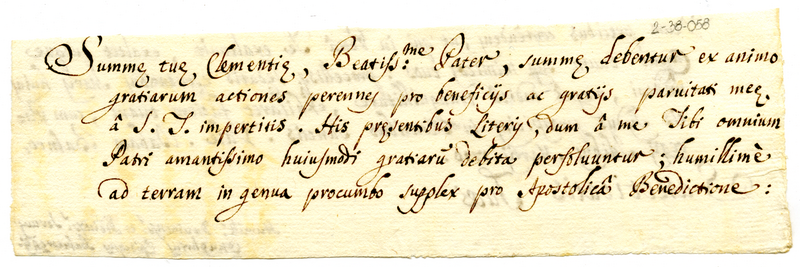 2-38-058
Summę tuę Clementię, Beatiss:me Pater, summę debentur ex animo
gratiarum actiones perennes pro beneficijs ac gratijs parvitati meę
â S. T. impertitis. His pręsentibus Literis, dum â me Tibi omnium
Patri amantissimo huiusmodi gratiarū debita persoluuntur; humillimè
ad terram in genua procumbo supplex pro Apostolicâ Benedictione: